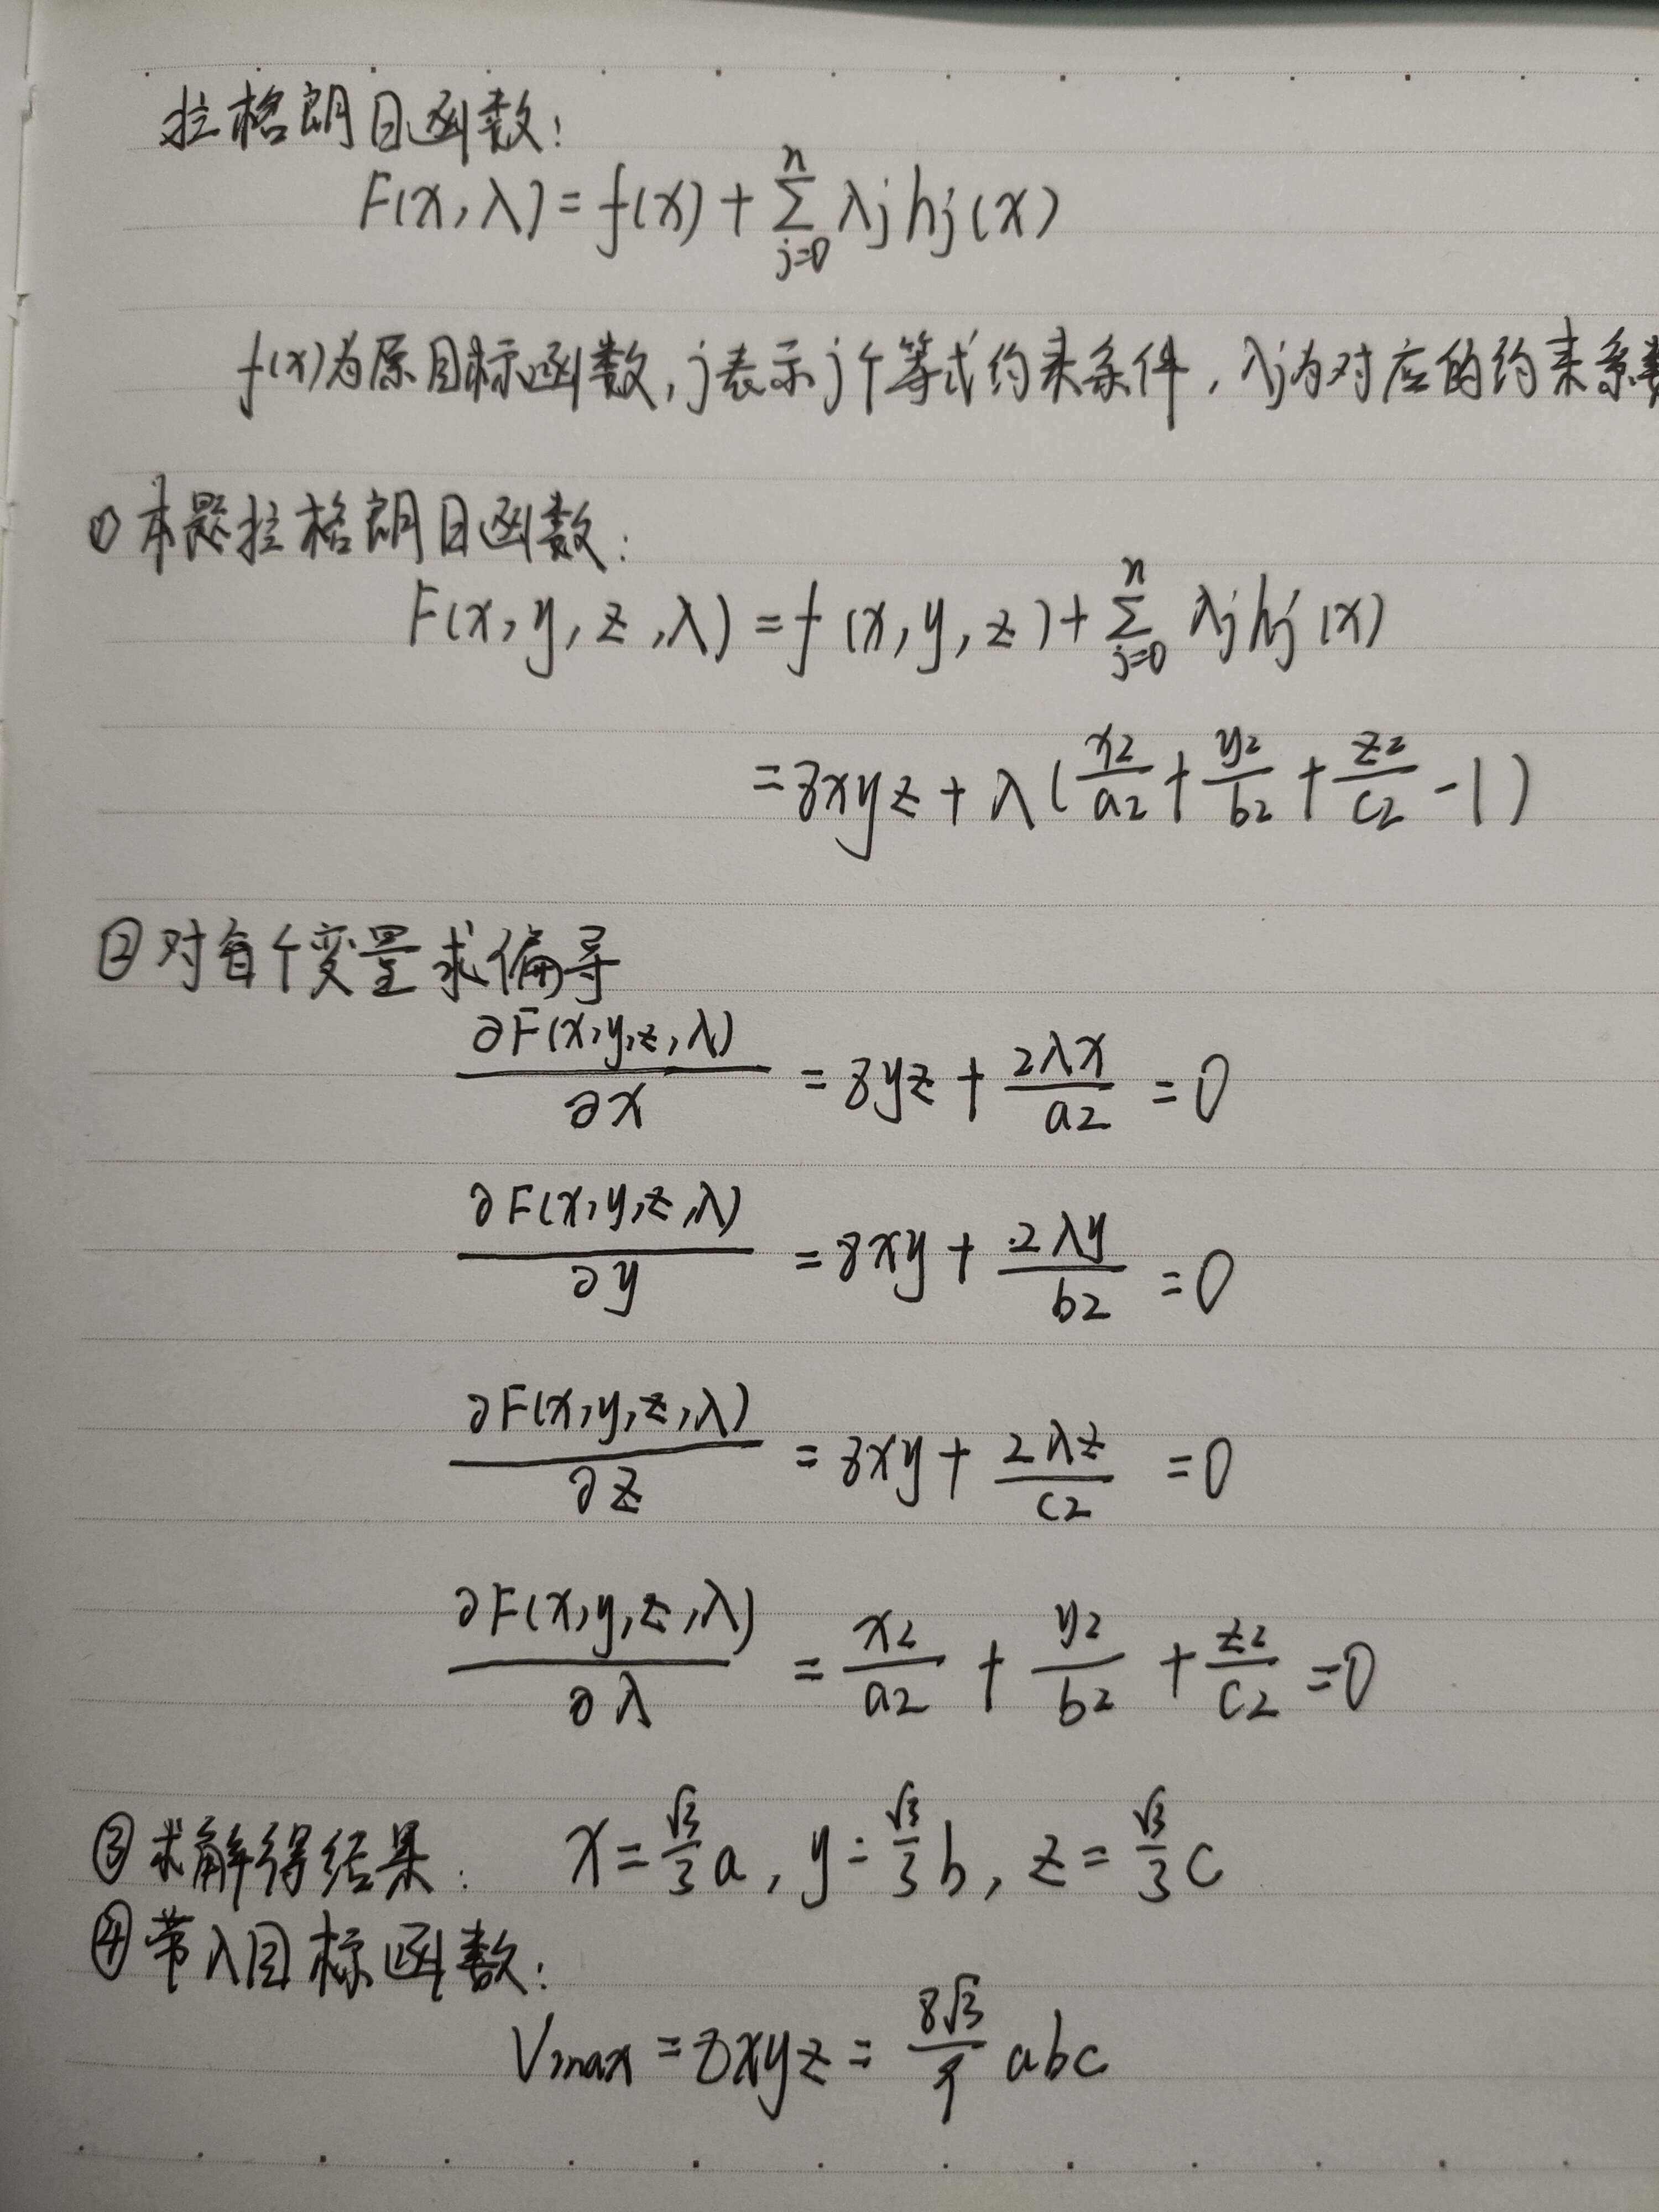 拉格朗日函数:
F(x,λ)=f(x)+∑_{j=0}^{n} λj hj(x)
f(x)为原目标函数,j表示j个等式约束条件,λj为对应的约束系数
①本题拉格朗日函数:
F(x,y,z,λ)=f(x,y,z)+∑_{j=0}^{n} λj hj(x)
=8xyz+λ(x2/a2+y2/b2+z2/c2-1)
②对每个变量求偏导
∂F(x,y,z,λ)/∂x=8yz+2λx/a2=0
∂F(x,y,z,λ)/∂y=8xy+2λy/b2=0
∂F(x,y,z,λ)/∂z=8xy+2λz/c2=0
∂F(x,y,z,λ)/∂λ=x2/a2+y2/b2+z2/c2=0
③求解得结果: x=√3/3 a,y=√3/3 b,z=√3/3 c
④带入目标函数:
Vmax=8xyz=8√3/9 abc